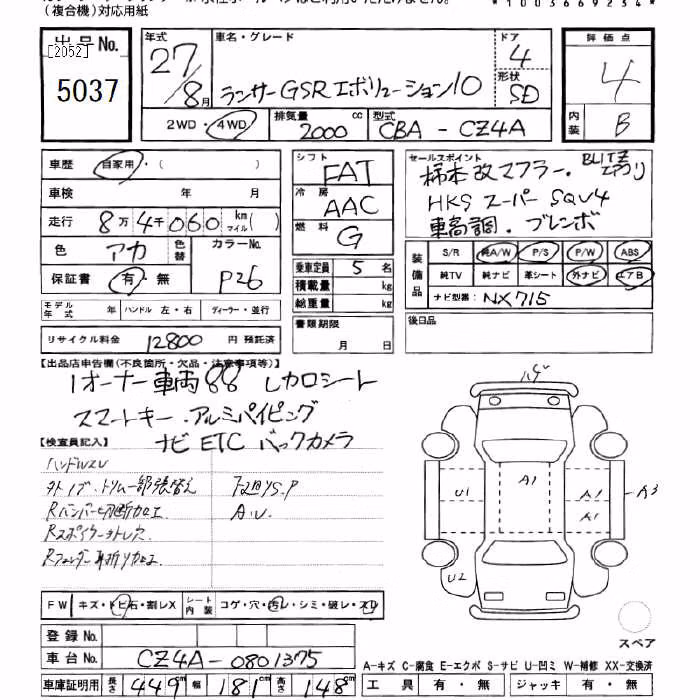 (複合機)対応用紙
*1003669234*
出品No.
[2052]
5037
年式
27/8月
車名・グレード
ランサーGSRエボリューション10
ドア
4
形状
SD
評価点
4
内装
B
2WD・4WD
排気量
2000 cc
型式
CBA - CZ4A
車歴
自家用・( )
車検 年 月
走行
8万4千060 km マイル( )
色
アカ
色替
カラーNo.
P26
保証書
有・無
モデル年式 年
ハンドル 左・右
ディーラー・並行
リサイクル料金
12800 円 預託済
シフト
FAT
冷房
AAC
燃料
G
乗車定員 5名
積載量 kg
総重量 kg
書類期限
月 日
セールスポイント
柿本改マフラー・BLITZエアクリ
HKS スーパーSQV4
車高調・ブレンボ
装備品
S/R 純A/W P/S P/W ABS
純TV 純ナビ 革シート 外ナビ エアB
ナビ型番: NX715
後日品
【出品店申告欄(不良箇所・欠品・注意事項等)】
1オーナー車両88 レカロシート
スマートキー・アルミパイピング
ナビ ETC バックカメラ
【検査員記入】
ハンドルスレ
外トノブ・トリム一部張替え
Rバンパー切断加工
Rスポイラー外レ穴
Rフェンダー耳折り加工
A.U.
U1
A1
A1
A1
A3
U2
FW
キズ・トビ石・割レX
シート内装
コゲ・穴・汚レ・シミ・破レ・スレ
登録No.
車台No.
CZ4A-0801375
車庫証明用
長さ 449cm 幅 181cm 高さ 148cm
スペア
A-キズ C-腐食 E-エクボ S-サビ U-凹ミ W-補修 XX-交換済
工具 有・無 ジャッキ 有・無